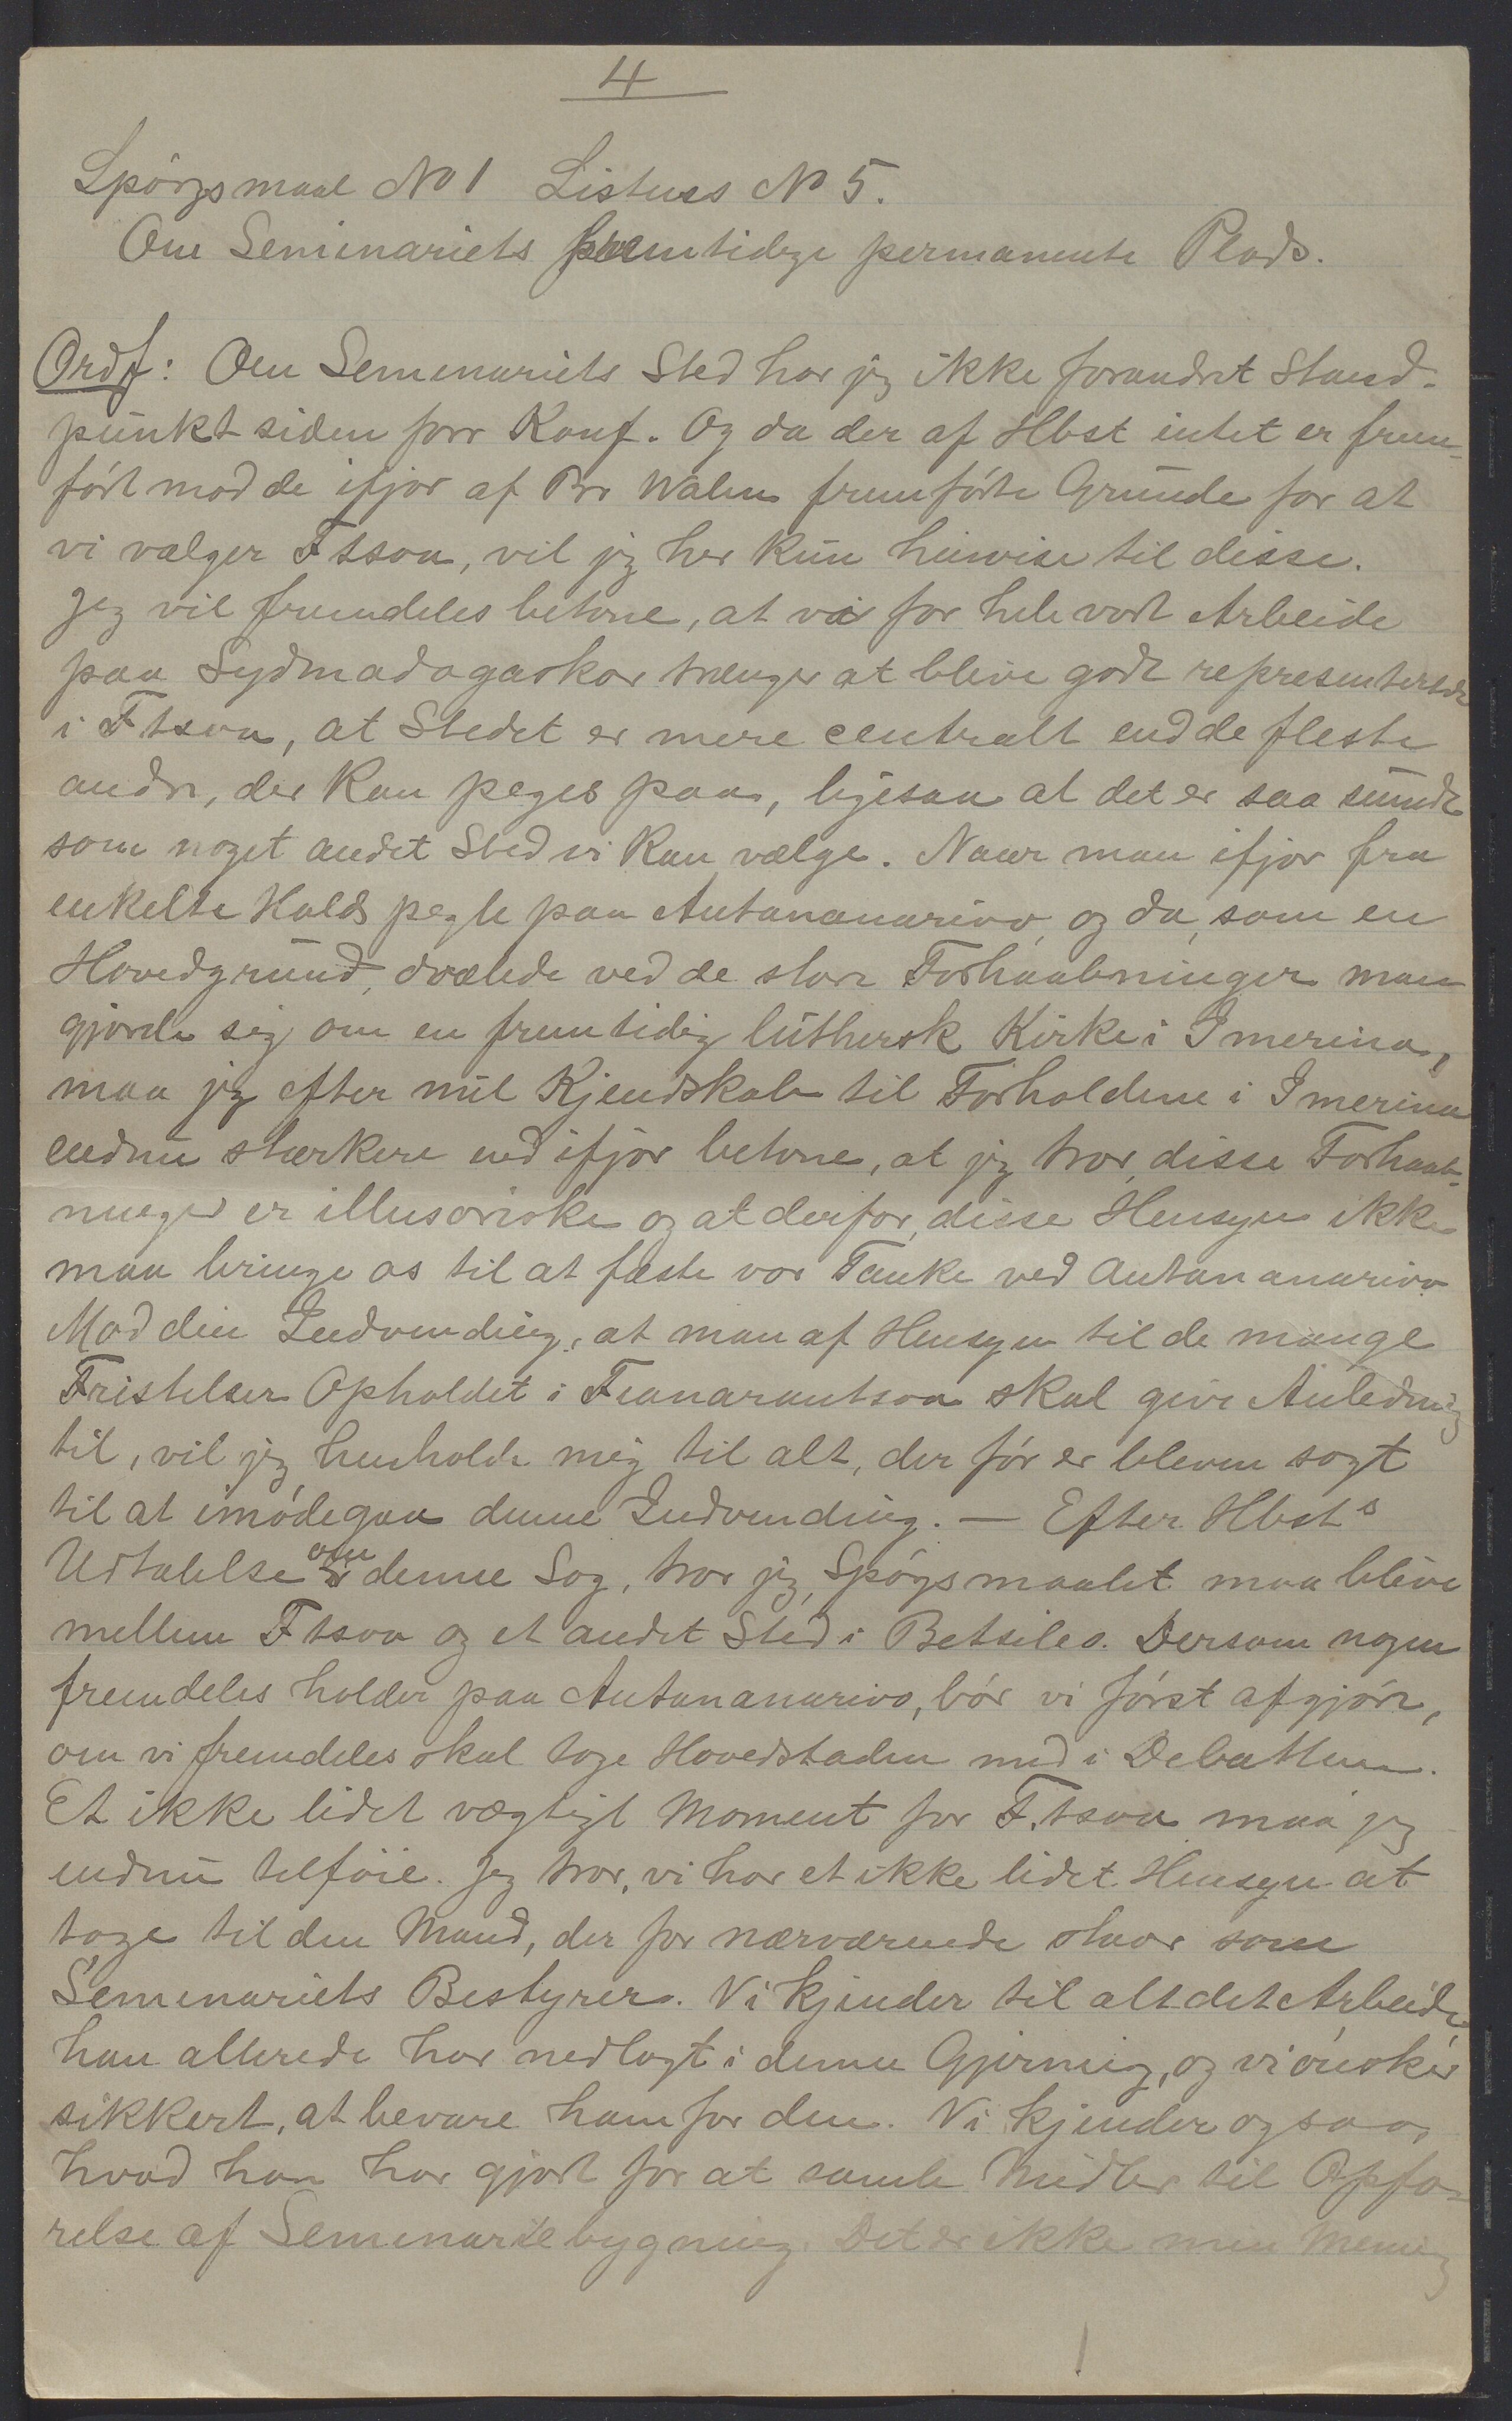 4
Spórgsmaal No 1 Listens No 5.
Om Seminariets fremtidige permanente Plads.
Ordf: Om Seminariets Sted har jeg ikke forandret Stand-
punkt siden forr Konf. Og da der af Hbst intet er frem-
fórt mod de ifjor af Br Walen fremfórte Grunde for at
vi vælger Ftsoa, vil jeg her kun henvise til disse.
Jeg vil fremdeles betone, at vi for hele vort Arbeide
paa Sydmadagaskar trænger at blive godt representerede
i Ftsoa, at Stedet er mere centralt end de fleste
andre, der kan peges paa, ligesaa at det er saa sundt
som noget andet Sted vi kan vælge. Naar man ifjor fra
enkelte Holds pegte paa Antananarivo, og da, som en
Hovedgrund, dvælede ved de store Forhaabninger man
gjorde sig om en fremtidig luthersk Kirke i Imerina,
maa jeg efter mit Kjendskab til Forholdene i Imerina
endnu stærkere end ifjor betone, at jeg tror, disse Forhaab-
ninger er illusoriske og at derfor, disse Hensyn ikke
maa bringe os til at fæste vor Tanke ved Antananarivo
Mod den Indvending, at man af Hensyn til de mange
Fristelser Opholdet i Fianarantsoa skal give Anledning
til, vil jeg henholde mig til alt, der fór er bleven sagt
til at imódegaa denne Indvending. — Efter Hbsts
Udtalelse om denne Sag, tror jeg, Spógsmaalet maa blive
mellem Ftsoa og et andet Sted i Betsileo. Dersom nogen
fremdeles holder paa Antananarivo, bór vi fórst afgjóre,
om vi fremdeles skal tage Hovedstaden med i Debatten.
Et ikke lidet vægtigt Moment for F.tsoa maa jeg
endnu tilfóie. Jeg tror, vi har et ikke lidet Hensyn at
tage til den Mand, der for nærværende staar som
Seminariets Bestyrer. Vi kjender til alt det Arbeide
han allerede har nedlagt i denne Gjerning, og vi ónsker
sikkert, at bevare ham for den. Vi kjender ogsaa,
hvad han har gjort for at samle Midler til Opfó-
relse af Seminariebygning. Det er ikke min Mening